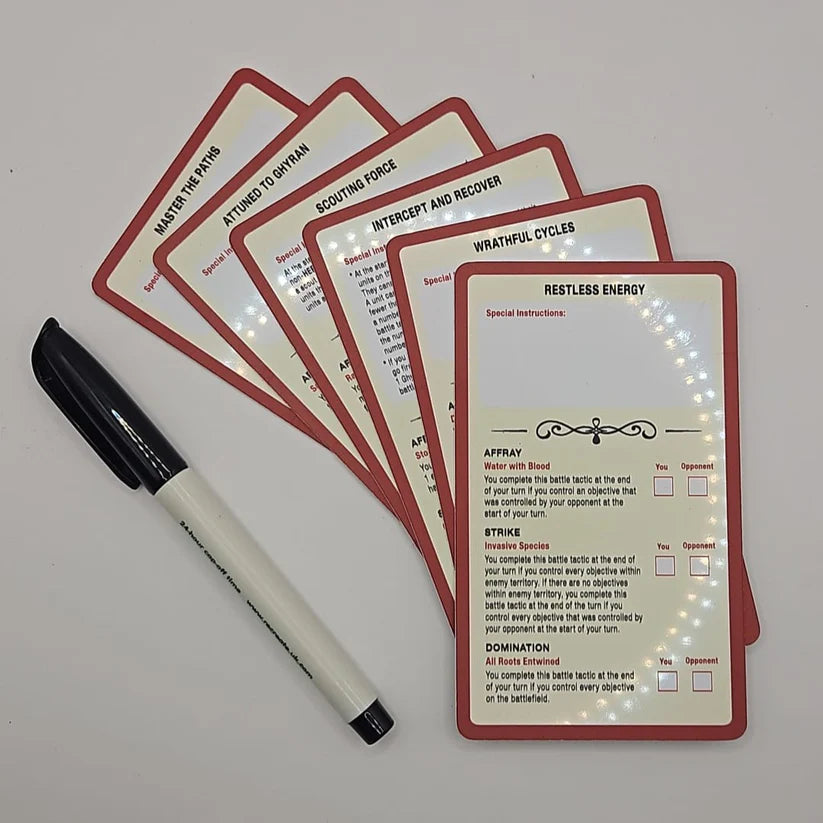 MASTER THE PATHS
Special
ATTUNED TO GHYRAN
Special In
SCOUTING FORCE
Special I
At the sta
non-HE
a scout
units th
units a
INTERCEPT AND RECOVER
Special Inst
* At the star
units on th
They cann
A unit ca
fewer th
a numb
battle ta
the nun
numbe
* If you
go firs
1 Ghy
battl
WRATHFUL CYCLES
Special
RESTLESS ENERGY
Special Instructions:
AFFRAY
Water with Blood
You Opponent
You complete this battle tactic at the end
of your turn if you control an objective that
was controlled by your opponent at the
start of your turn.
STRIKE
Invasive Species
You Opponent
You complete this battle tactic at the end of
your turn if you control every objective within
enemy territory. If there are no objectives
within enemy territory, you complete this
battle tactic at the end of the turn if you
control every objective that was controlled by
your opponent at the start of your turn.
DOMINATION
All Roots Entwined
You Opponent
You complete this battle tactic at the end
of your turn if you control every objective
on the battlefield.
24-hour cap-off time